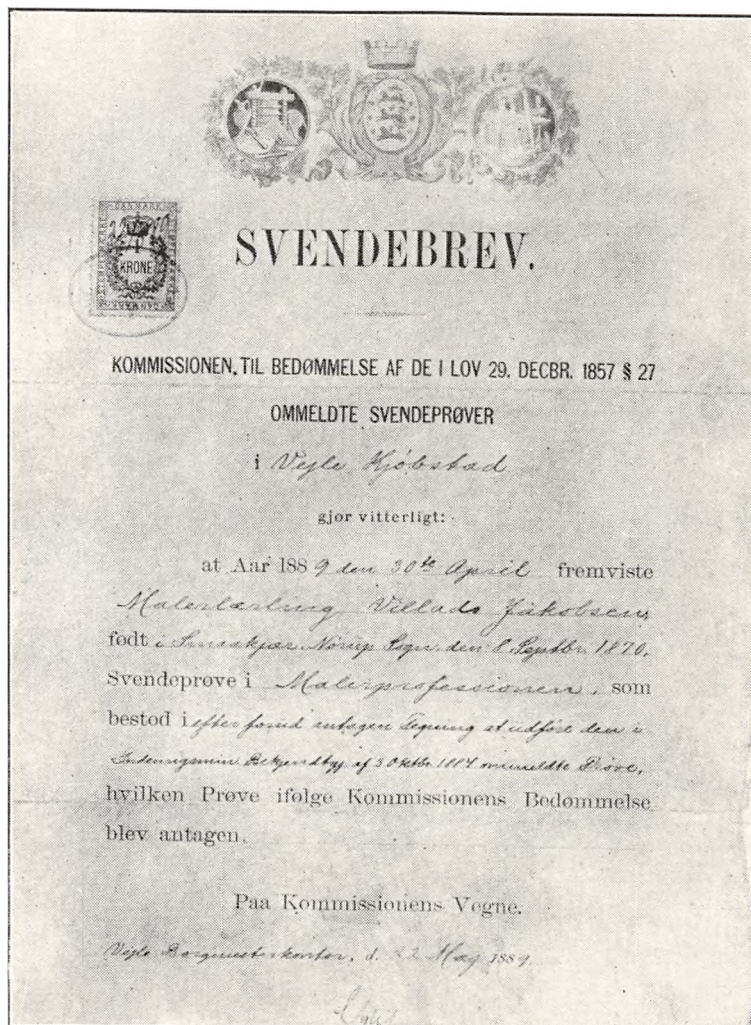 DANMARK
1
KRONE
DANMARK
SVENDEBREV.
KOMMISSIONEN, TIL BEDØMMELSE AF DE I LOV 29. DECBR. 1857 § 27
OMMELDTE SVENDEPRØVER
i Vejle Kjøbstad
gjør vitterligt:
at Aar 1889 den 30te April fremviste
Malerlærling Villads Jakobsen,
født i Smaakjær, Nørup Sogn, den 8 Septbr. 1870,
Svendeprøve i Malerprofessionen, som
bestod i efter forud antagen Tegning at udføre den i
Indenrigsmin. Bekjendtg. af 3 Oktbr. 1884 ommeldte Prøve,
hvilken Prøve ifølge Kommissionens Bedømmelse
blev antagen.
Paa Kommissionens Vegne.
Vejle Borgmesterkontor, d. 22 Maj 1889.